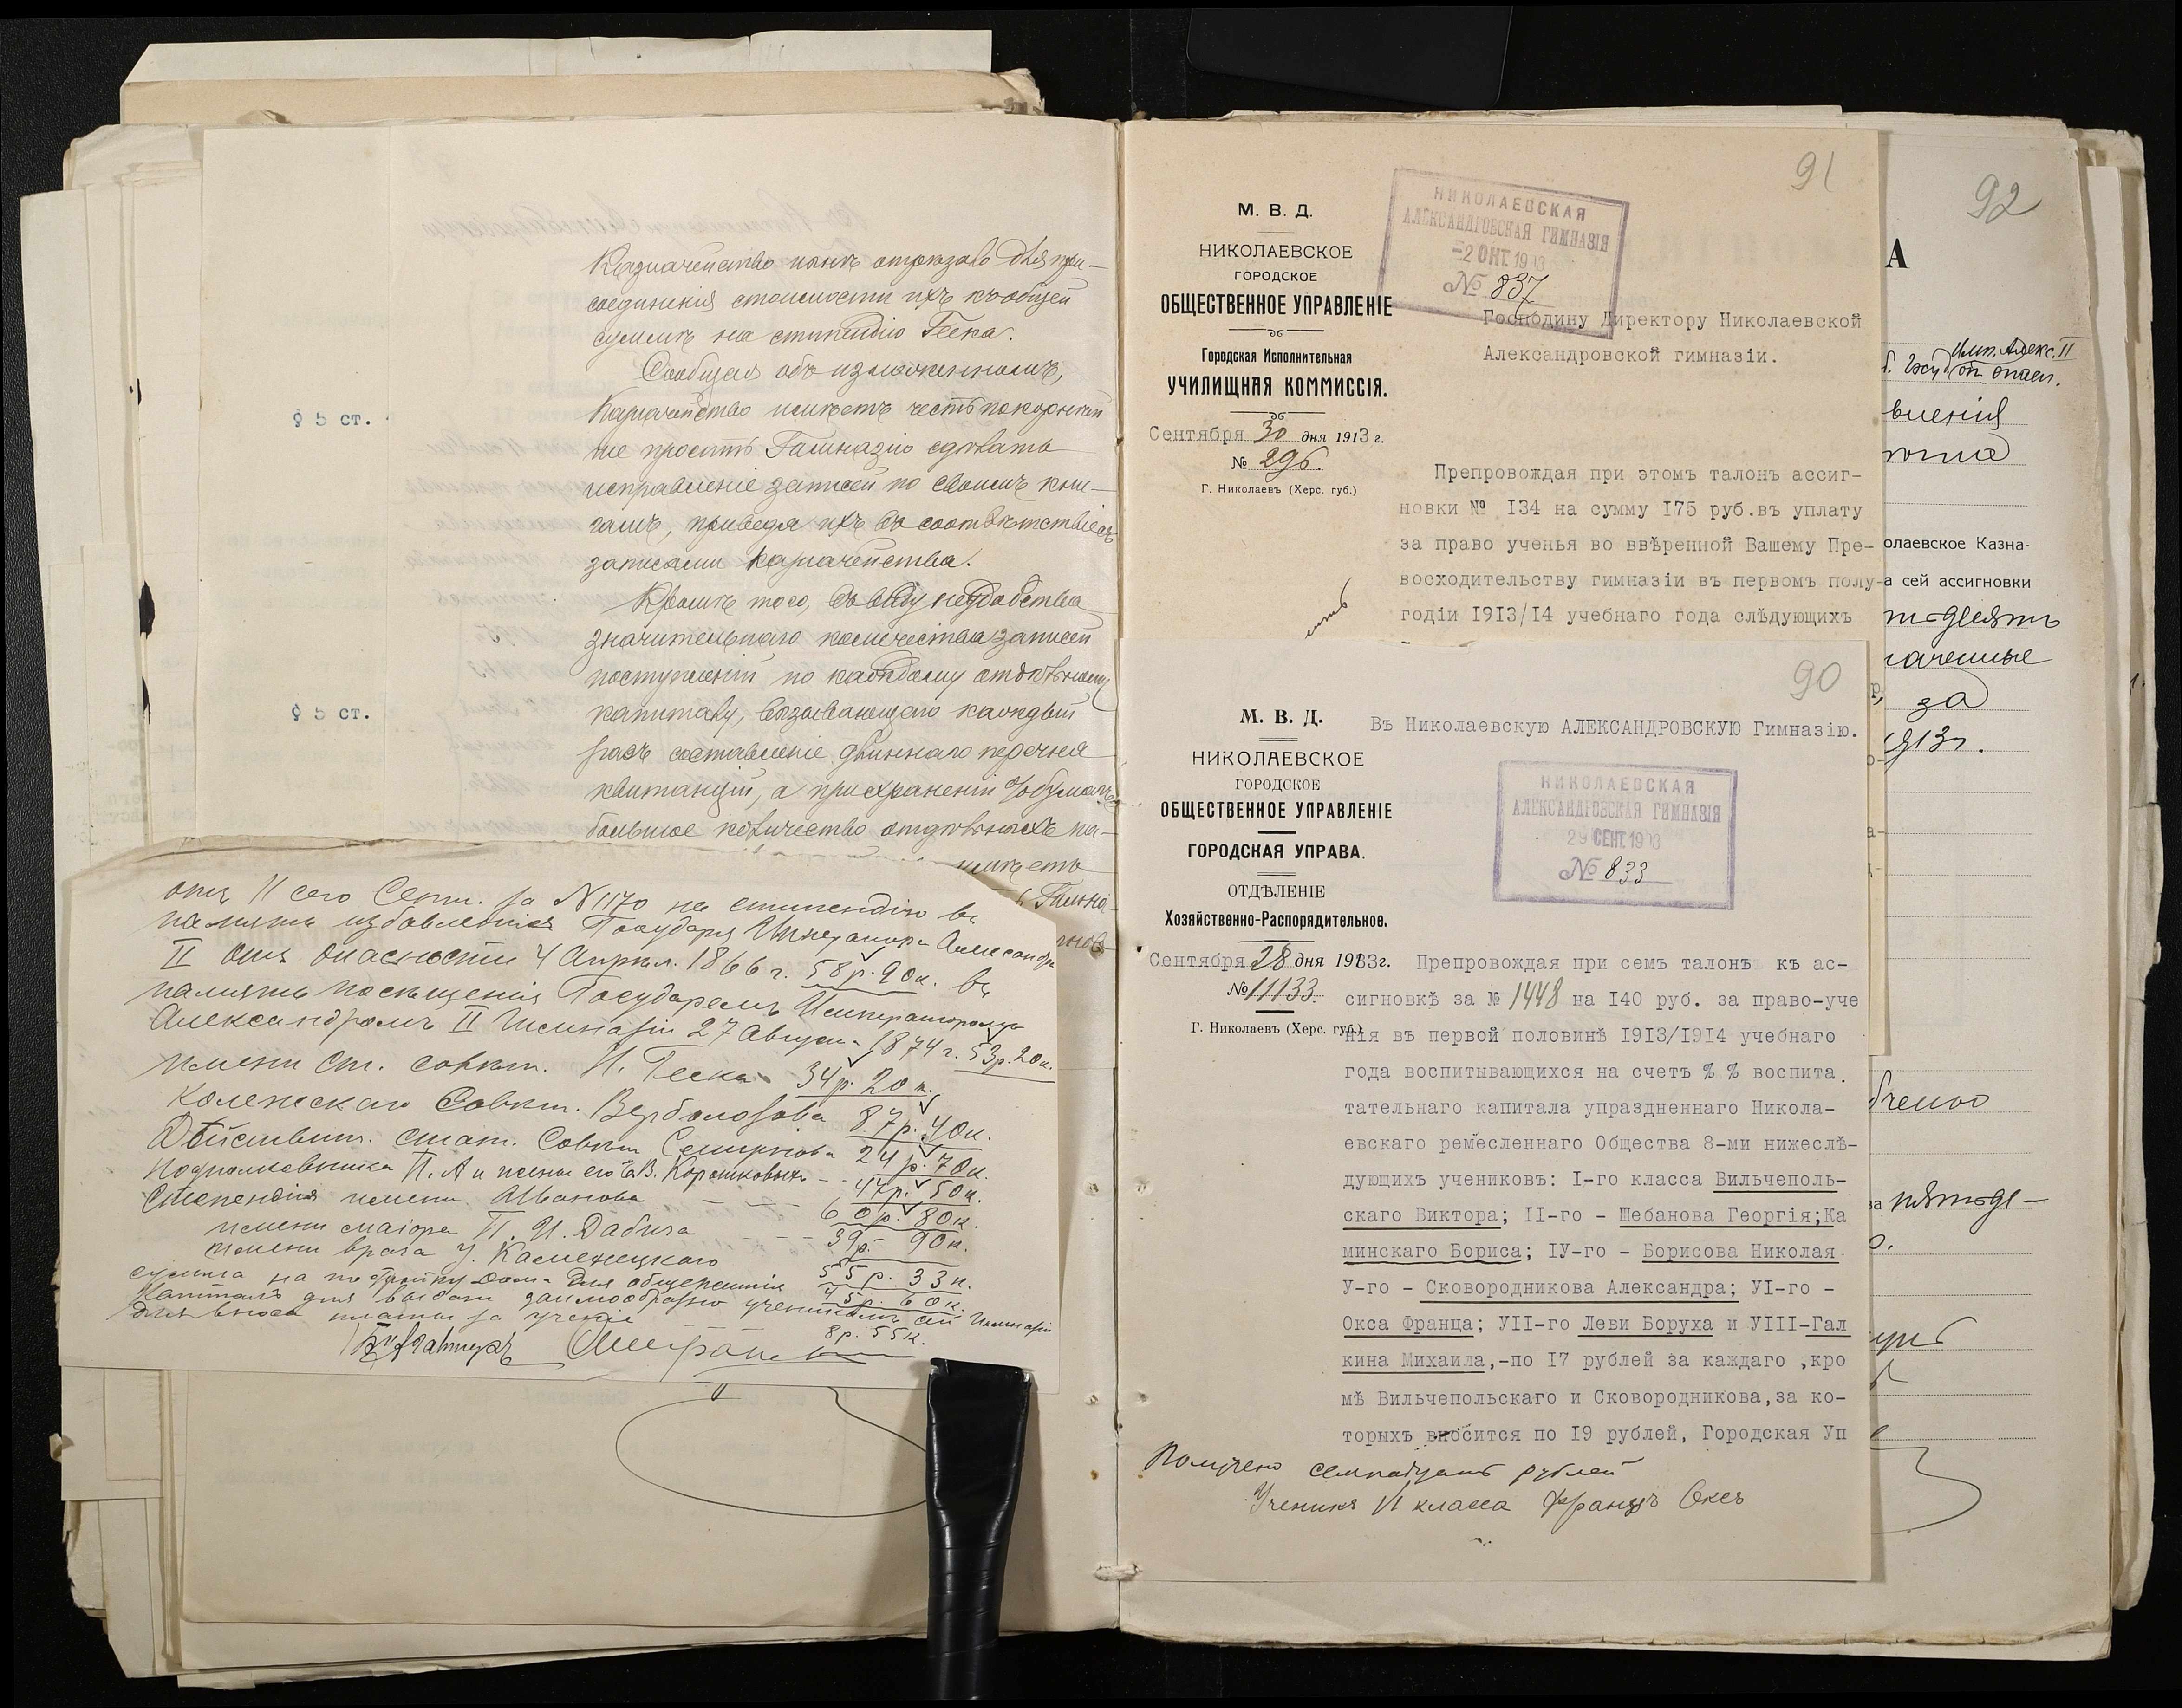 Казначейство нынѣ отказало для при-
соединенія стоимости ихъ къ общей
суммѣ на стипендію Геека.
Сообщая объ изложенномъ,
Казначейство имѣетъ честь покорнѣй
ше просить Гимназію сдѣлать
исправленіе записей по своимъ кни-
гамъ, приведя ихъ въ соотвѣтствіе съ
записями Казначейства.
§ 5 ст.
Кромѣ того, въ виду неудобства
значительнаго количества записей
поступленій по каждому отдѣльному
капиталу, вызывающаго каждый
разъ составленіе длиннаго перечня
квитанцій, а при храненіи %бумагъ
большое количество отдѣльныхъ ка-
§ 5 ст.
имѣетъ
Гимна-
отъ 11 сего Сент. за № 1170 на стипендію въ
память избавленія Государя Императора Александра
II отъ опасности 4 Апрѣл. 1866 г. 58 р. 90 к. въ
память посѣщенія Государемъ Императоромъ
Александромъ II Гимназіи 27 Августа 1874 г. 53 р. 20 к.
имени ст. совѣт. И. Геека 34 р. 20 к.
Колежскаго Совѣт. Верболозова 87 р. 40 к.
Дѣйствит. стат. Совѣт Смирнова 24 р. 70 к.
Подполковника П. А и жены его Е.В. Коротковыхъ - 47 р. 50 к.
Стипендія имени Иванова 60 р. 80 к.
имени маіора П. И. Дабича 39 р. 90 к.
имени врача У. Каменецкаго 55 р. 33 к.
сумма на постройку дома для общежитія 45 р. 60 к.
Капиталъ для выдачи заимообразно ученикамъ сей Гимназіи
для взноса платы за ученіе 8 р. 55 к.
91
М. В. Д.
НИКОЛАЕВСКОЕ
ГОРОДСКОЕ
ОБЩЕСТВЕННОЕ УПРАВЛЕНІЕ
Городская Исполнительная
УЧИЛИЩНАЯ КОММИССІЯ.
Сентября 30 дня 1913 г.
№ 296.
Г. Николаевъ (Херс. губ.)
НИКОЛАЕВСКАЯ
АЛЕКСАНДРОВСКАЯ ГИМНАЗІЯ
-2 ОКТ. 1913
№ 837
Господину Директору Николаевской
Александровской гимназіи.
Препровождая при этомъ талонъ ассиг-
новки № 134 на сумму 175 руб.въ уплату
за право ученья во ввѣренной Вашему Пре-
восходительству гимназіи въ первомъ полу-
годіи 1913/14 учебнаго года слѣдующихъ
90
М. В. Д.
НИКОЛАЕВСКОЕ
ГОРОДСКОЕ
ОБЩЕСТВЕННОЕ УПРАВЛЕНІЕ
ГОРОДСКАЯ УПРАВА.
ОТДѢЛЕНІЕ
Хозяйственно-Распорядительное.
Сентября 28 дня 1913г.
№ 11133.
Г. Николаевъ (Херс. губ.)
Въ Николаевскую АЛЕКСАНДРОВСКУЮ Гимназію.
НИКОЛАЕВСКАЯ
АЛЕКСАНДРОВСКАЯ ГИМНАЗІЯ
29 СЕНТ. 1913
№ 833
Препровождая при семъ талонъ къ ас-
сигновкѣ за № 1448 на 140 руб. за право-уче
нія въ первой половинѣ 1913/1914 учебнаго
года воспитывающихся на счетъ % % воспита.
тательнаго капитала упраздненнаго Никола-
евскаго ремесленнаго Общества 8-ми нижеслѣ-
дующихъ учениковъ: I-го класса Вильчеполь-
скаго Виктора; II-го - Шебанова Георгія;Ка
минскаго Бориса; IУ-го - Борисова Николая
У-го - Сковородникова Александра; УI-го -
Окса Франца; УII-го Леви Боруха и УIII-Гал
кина Михаила,-по 17 рублей за каждаго ,кро
мѣ Вильчепольскаго и Сковородникова,за ко-
торыхъ вносится по 19 рублей, Городская Уп
Получено семнадцать рублей
Ученикъ VI класса Францъ Оксъ
92
А
Имп. Алекс. II
отъ опасн.
вленія
олаевское Казна-
а сей ассигновки
ть-десять
наченные
за
1913г.
пятьде-